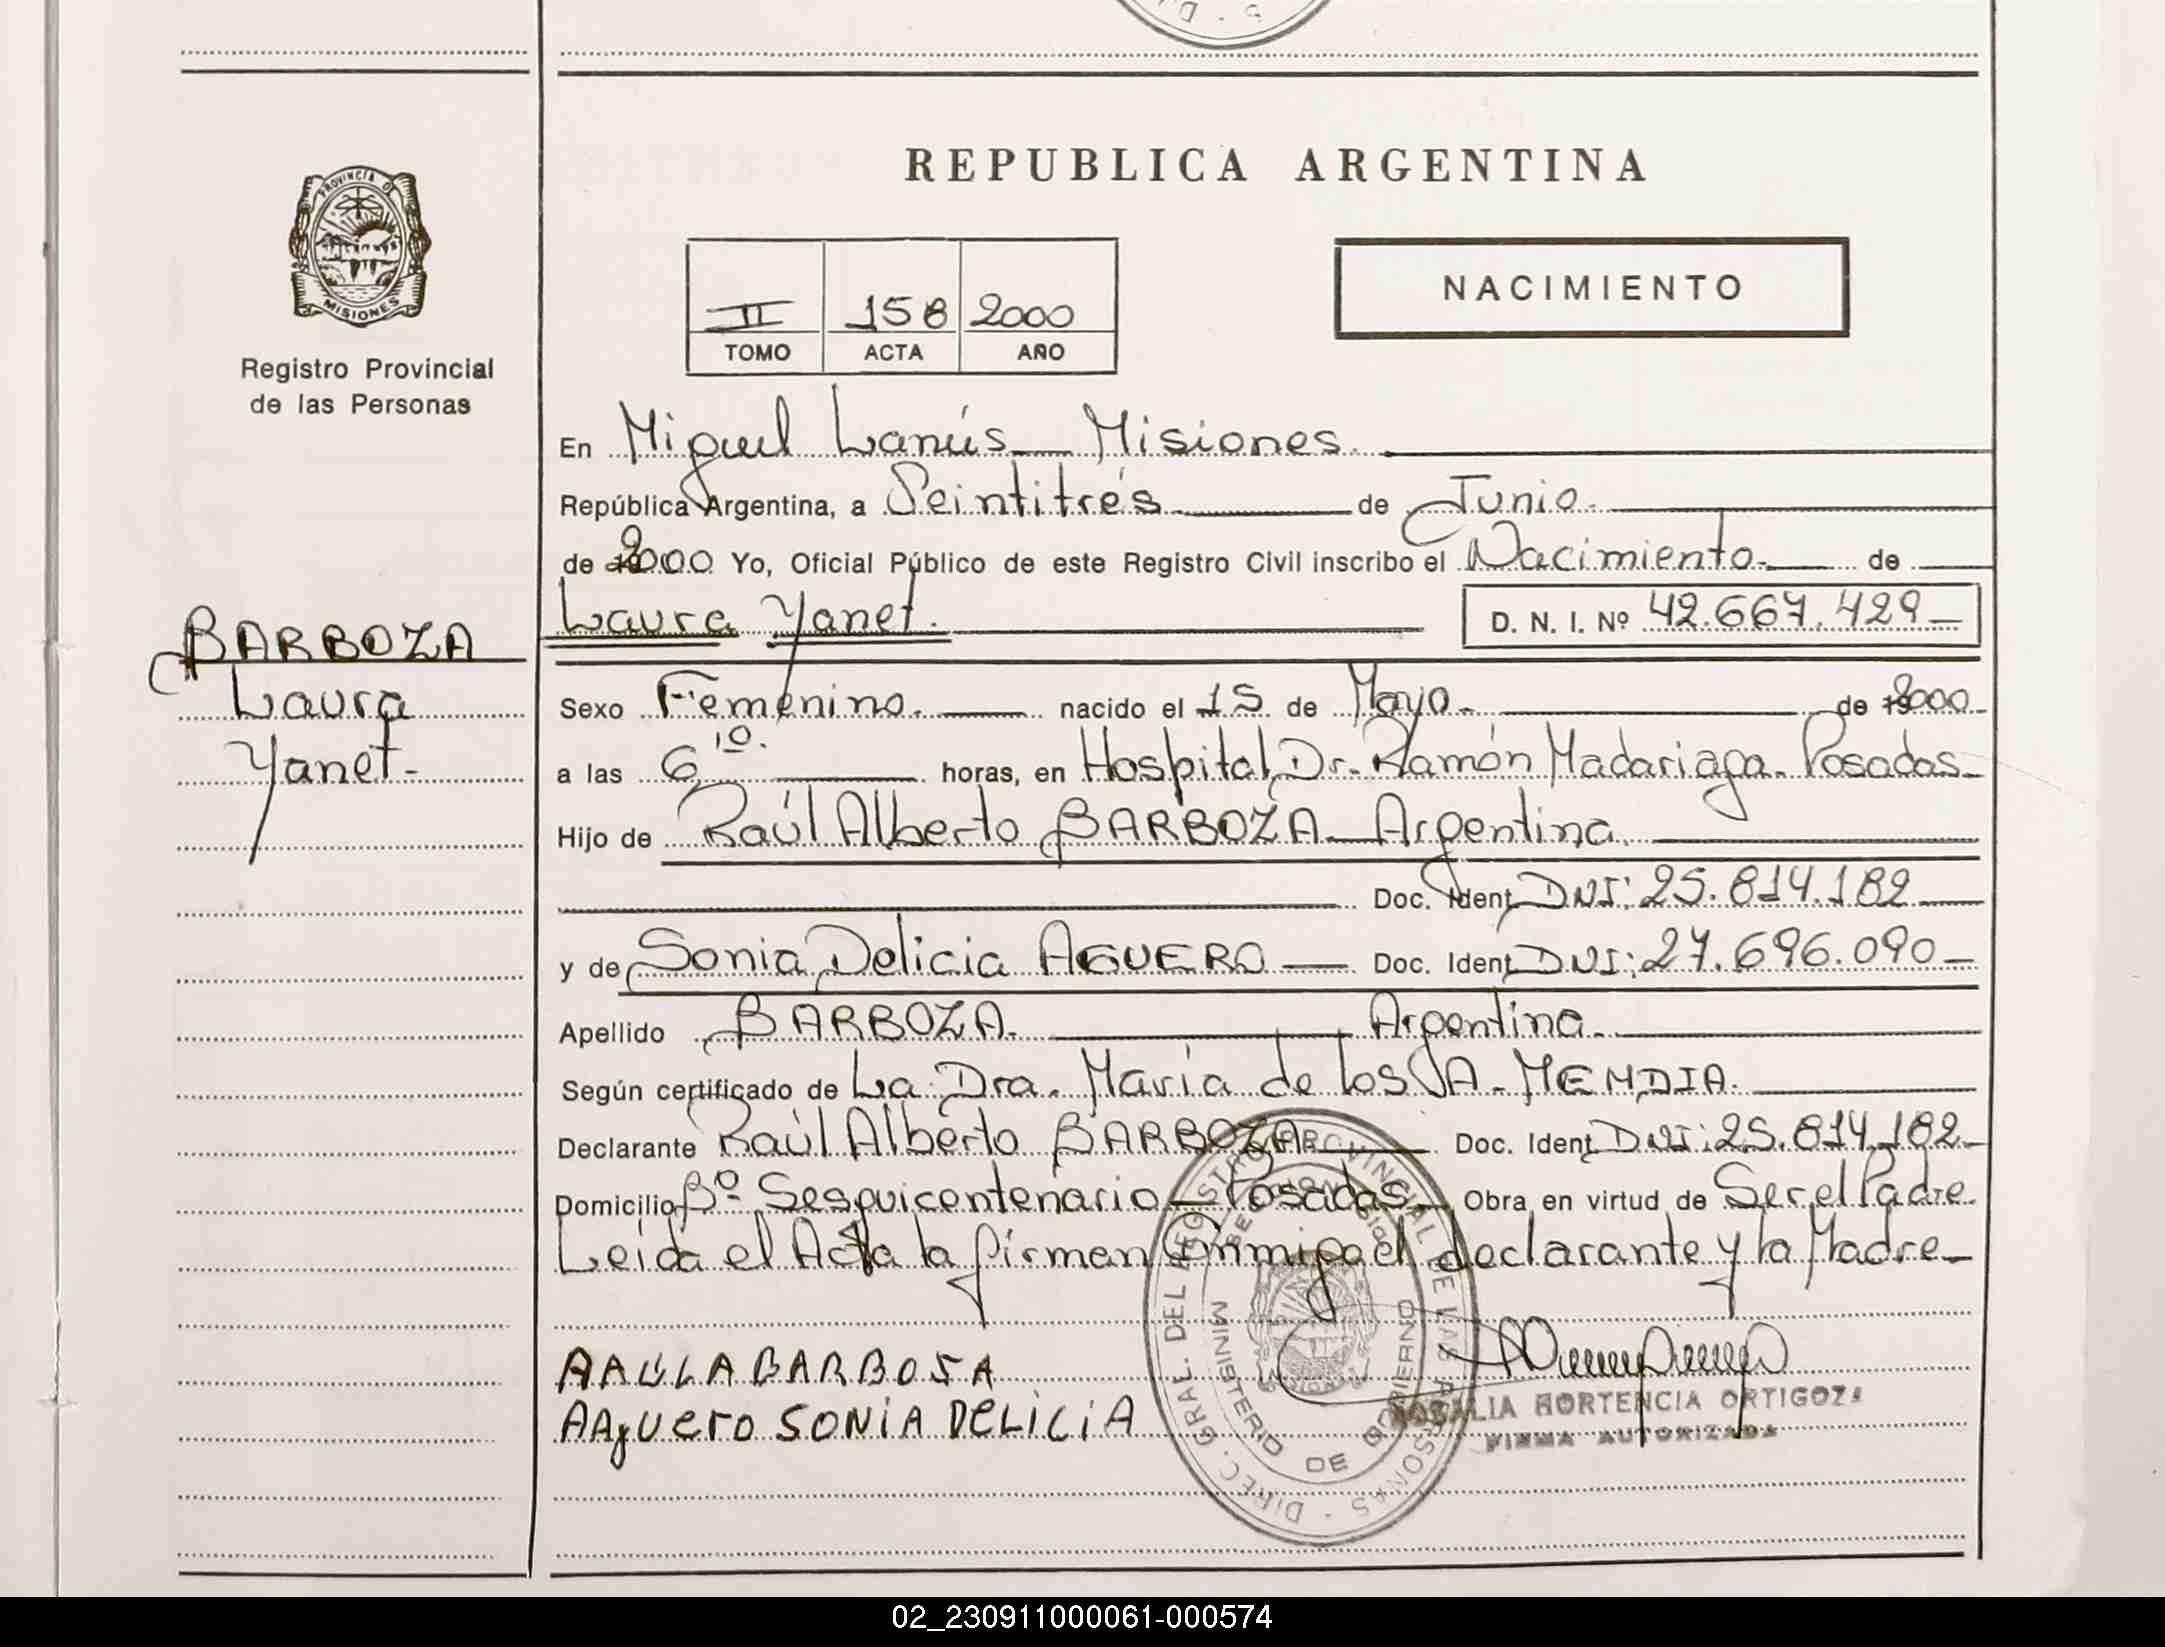 REPUBLICA ARGENTINA
PROVINCIA D
MISIONES
Registro Provincial
de las Personas
II 158 2000
TOMO ACTA AÑO
NACIMIENTO
En Miguel Lanús - Misiones.
República Argentina, a Veintitrés de Junio.
de 2000 Yo, Oficial Público de este Registro Civil inscribo el Nacimiento. de
Laura Yanet. D. N. I. Nº 42.667.429
BARBOZA
Laura
Yanet.
Sexo Femenino. nacido el 15 de Mayo. de 2000
a las 6,10. horas, en Hospital Dr. Ramón Madariaga. Posadas.
Hijo de Raúl Alberto BARBOZA - Argentina.
Doc. Ident. DNI: 25.814.182
y de Sonia Delicia AGUERO - Doc. Ident. DNI: 27.696.090
Apellido BARBOZA. Argentina.
Según certificado de La Dra. María de los A. MENDIA.
Declarante Raúl Alberto BARBOZA Doc. Ident. DNI: 25.814.182
Domicilio Bº Sesquicentenario - Posadas. Obra en virtud de Ser el Padre
Leída el Acta la firman el declarante y la Madre
AAÚLABARBOSA
AAgUero SONIA DELICIA
DIREC. GRAL. DEL REGISTRO PROVINCIAL DE LAS PERSONAS
MINISTERIO DE GOBIERNO
ROSALIA HORTENCIA ORTIGOZA
FIRMA AUTORIZADA
02_230911000061-000574